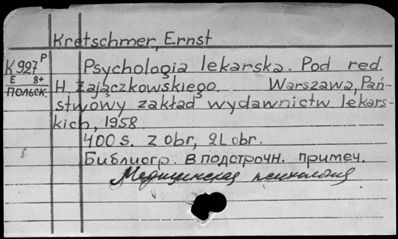 Kretschmer, Ernst
K927 P
E 8+
польск.
Psychologia lekarska. Pod red.
H. Zajączkowskiego. Warszawa, Pań-
stwowy zakład wydawnictw lekars-
kich, 1958
400 s. z obr, 2 L obr.
Библиогр. в подстрочн. примеч.
Медицинская психология